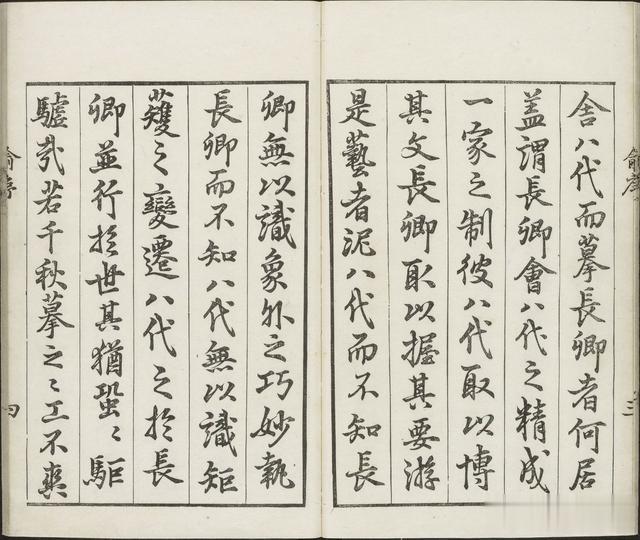 舍八代而摹長卿者何居
盖謂長卿會八代之精成
一家之制彼八代取以博
其文長卿取以握其要游
是藝者泥八代而不知長
卿無以識象外之巧妙執
長卿而不知八代無以識矩
蒦之變遷八代之於長
卿並行於世其猶蛩〻駏
驉哉若千秋摹之〻工不爽
俞序
三
俞序
四